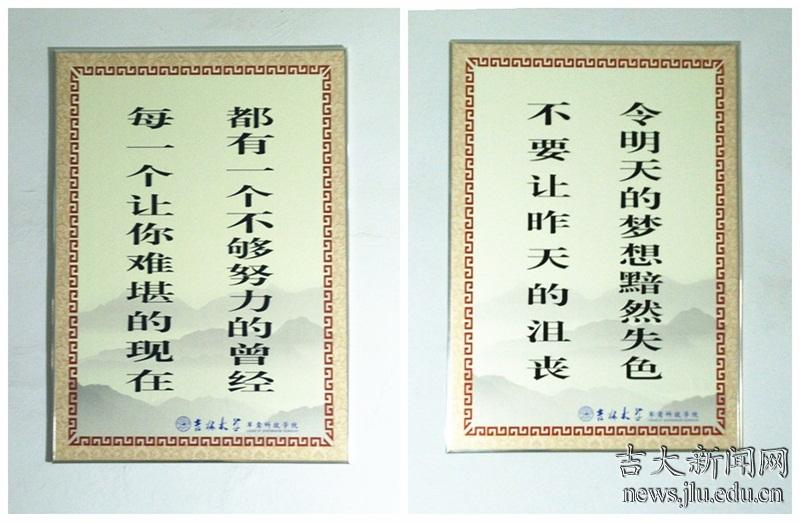 每一个让你难堪的现在
都有一个不够努力的曾经
吉林大学 军需科技学院
不要让昨天的沮丧
令明天的梦想黯然失色
吉林大学 军需科技学院
吉大新闻网
news.jlu.edu.cn